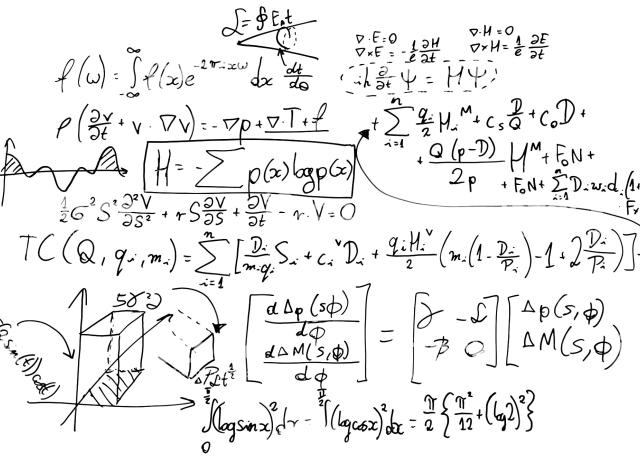 L = ∮ E₀t
∇·E=0 ∇·H=0
∇×E = -1/e ∂H/∂t ∇×H = 1/e ∂E/∂t
f(ω) = ∫_{-∞}^{∞} f(x)e^{-2πixω} dx dt/dθ
iħ ∂/∂t Ψ = HΨ
ρ(∂v/∂t + v·∇v) = -∇p + ∇·T + f
+ Σ_{i=1}^{n} q_i/2 H_i^M + c_s D/Q + c_o D +
+ Q(p-D)/2p H^M + F₀N +
+ F₀N + Σ_{i=1}^{n} D_i w_i d_i (1+
H = -Σ p(x) log p(x)
1/2 σ² S² ∂²V/∂S² + rS ∂V/∂S + ∂V/∂t - r·V = 0
TC(Q, q_i, m_i) = Σ_{i=1}^{n} [D_i/(m·q_i) S_i + c_i^v D_i + q_i H_i^v/2 (m_i(1 - D_i/P_i) - 1 + 2 D_i/P_i)]
[dΔp(sϕ)/dϕ dΔM(s,ϕ)/dϕ] = [∂ -L -β 0] [Δp(s,ϕ) ΔM(s,ϕ)
∫_0^{π/2} (log sin x)² dx = ∫^{π/2} (log cos x)² dx = π/2 {π²/12 + (log 2)²}